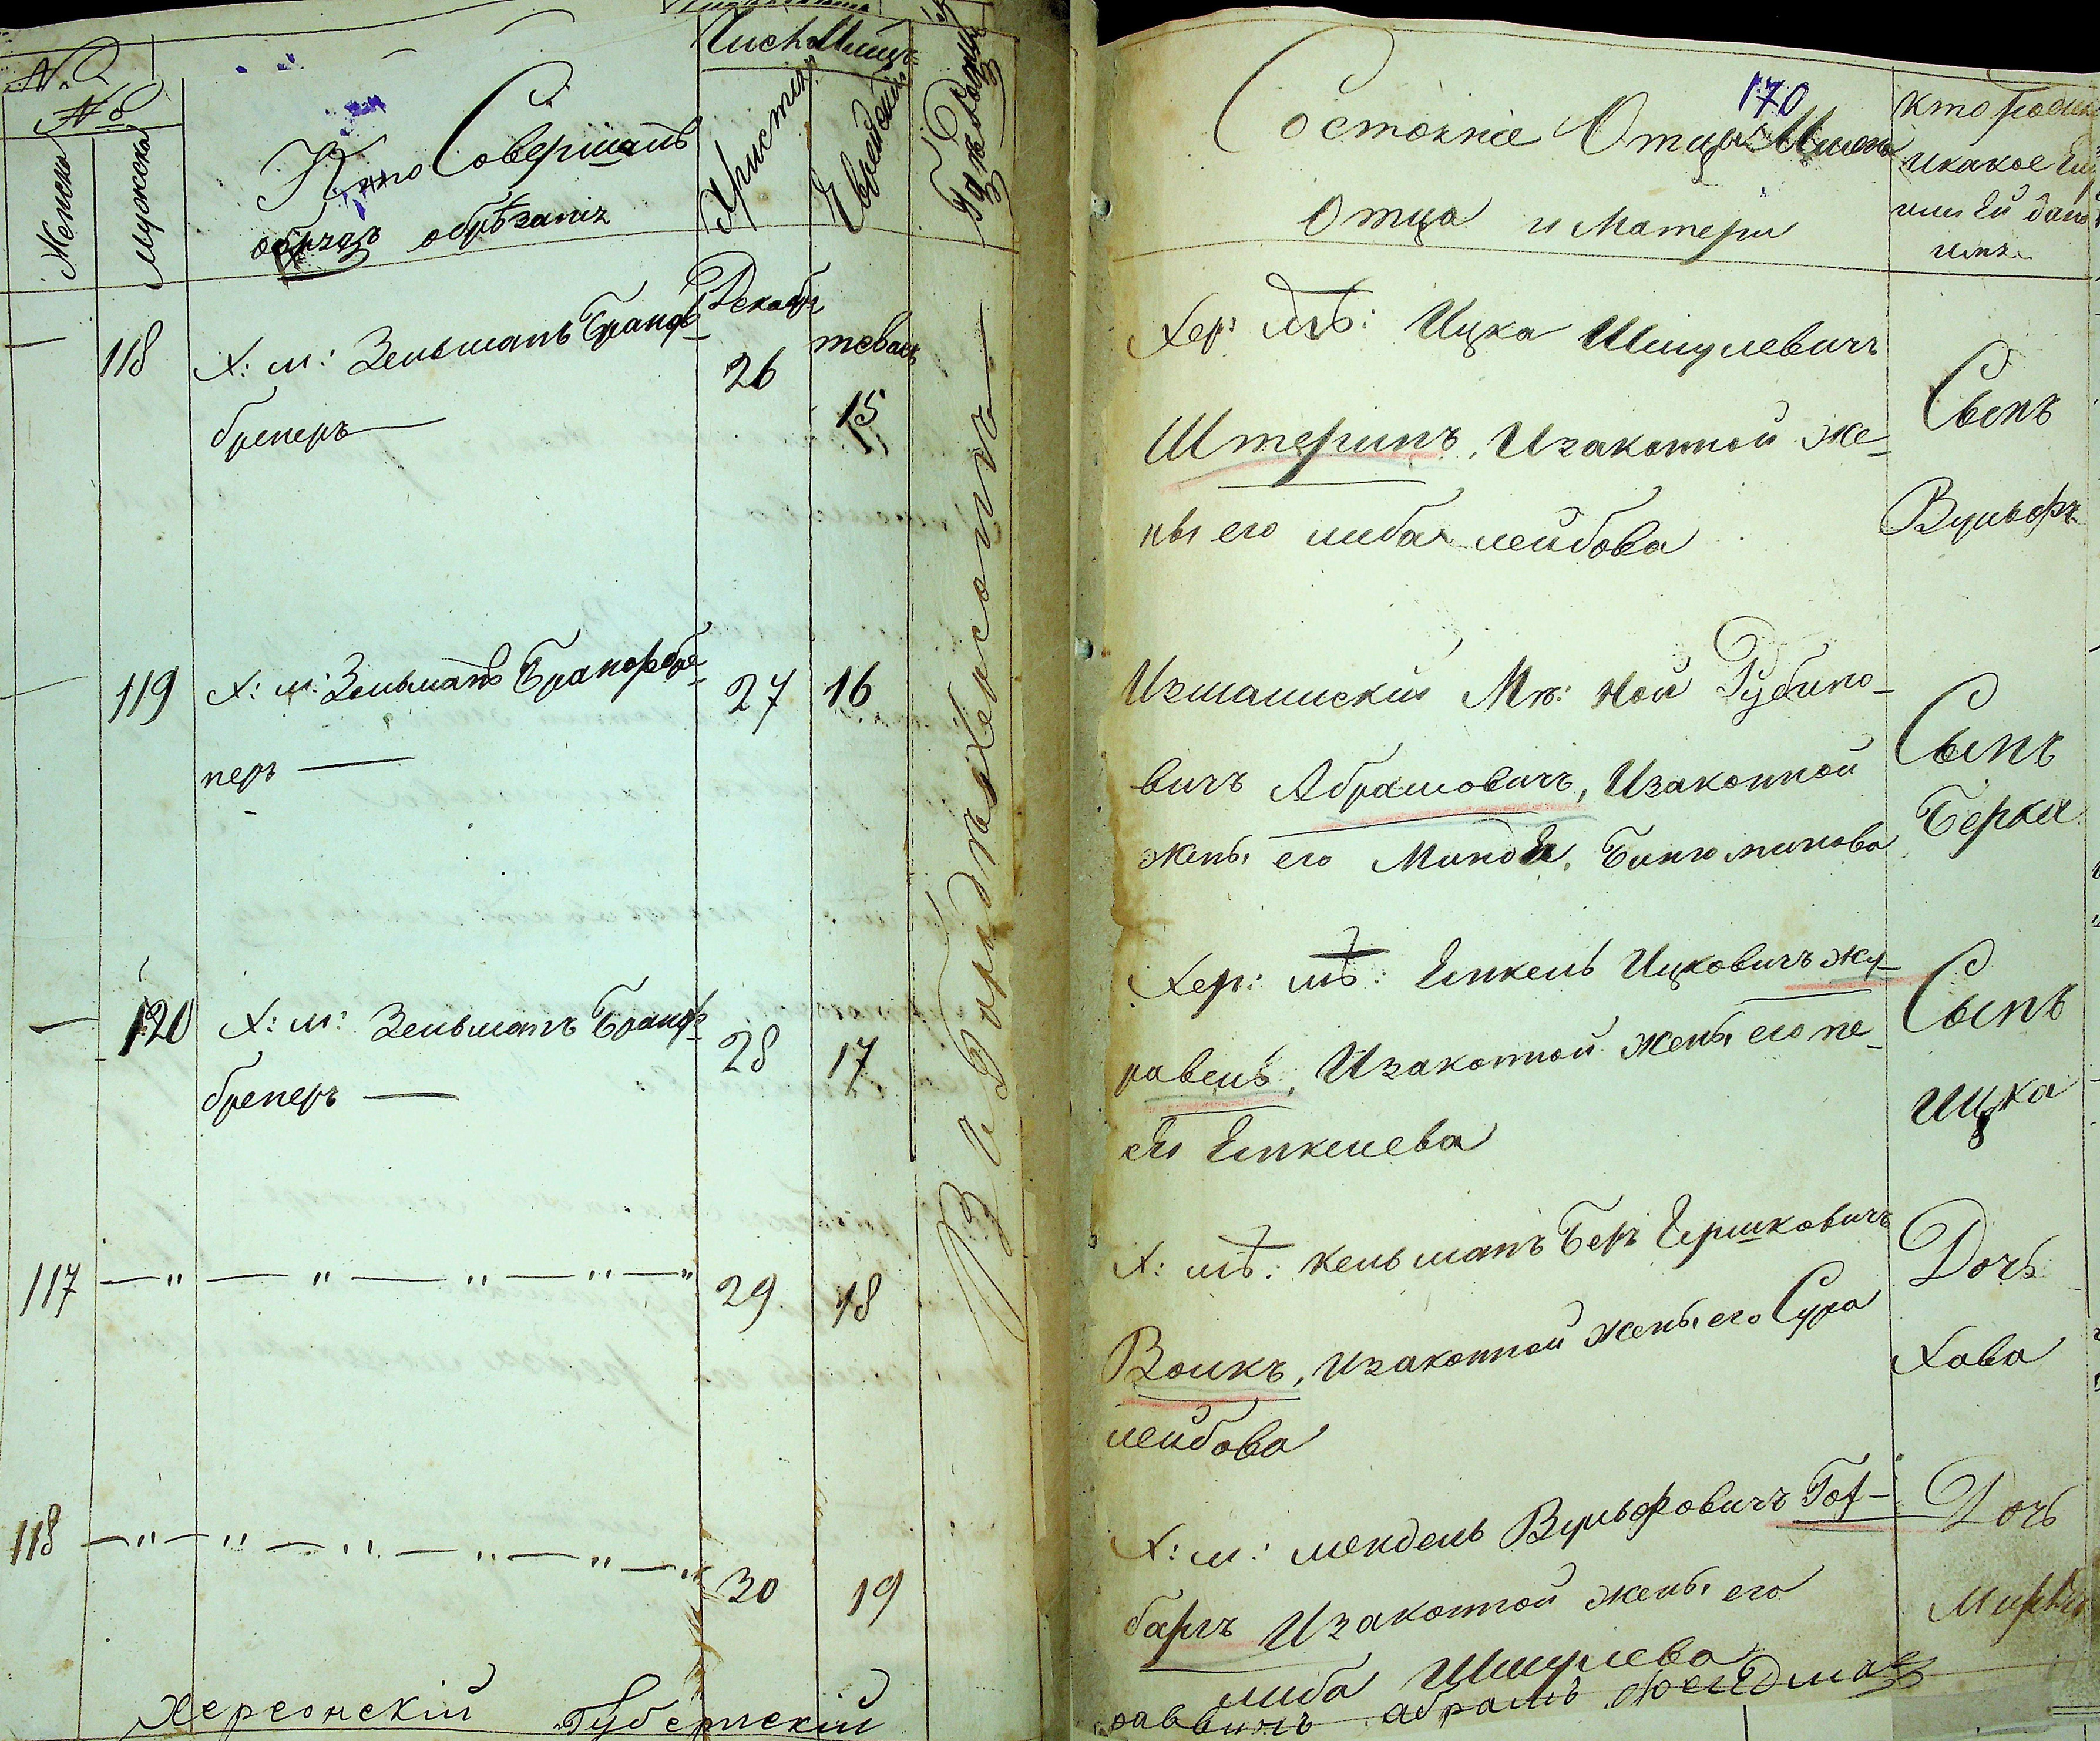 №
№
Женска
Мужска
Кто Совершалъ
обрядъ обрѣзанія
Христіан
Еврейскій
Гдѣ Родился
118
Х: м: Зельманъ Бранф-
бренеръ
Декабр
26
тевасъ
15
119
Х: м: Зельманъ Бранфбре-
неръ
27
16
120
Х: м: Зельманъ Бранф-
бренеръ
28
17
117
29
18
118
30
19
Въ Городѣ Херсонѣ
Херсонскій Губернскій
170
Состояніе Отца Имена
Отца и Матери
кто родил
и какое Ему
или Ей дано
имя
Хер: мѣ: Ицка Шмулевичъ
Штеринъ, Изаконной же-
ны его либа лейбова
Сынъ
Вульфъ
Измаилскій Мѣ: Ной Рубино-
вичъ Абрамовичъ, Изаконной
жены его Минда, Бинюминова
Сынъ
Берка
Хер: мѣ: Янкель Ицковичъ Жу-
равель, Изаконной жены его пе-
Янкелева
Сынъ
Ицка
Х: мѣ: Кельманъ Беръ Гершковичъ
Волкъ, Изаконной жены его Сура
лейбова
Дочь
Хава
Х: м: мендель Вульфовичъ Гот-
баръ Изаконной жены его
либа Шмулева
Дочь
раввинъ абрамъ